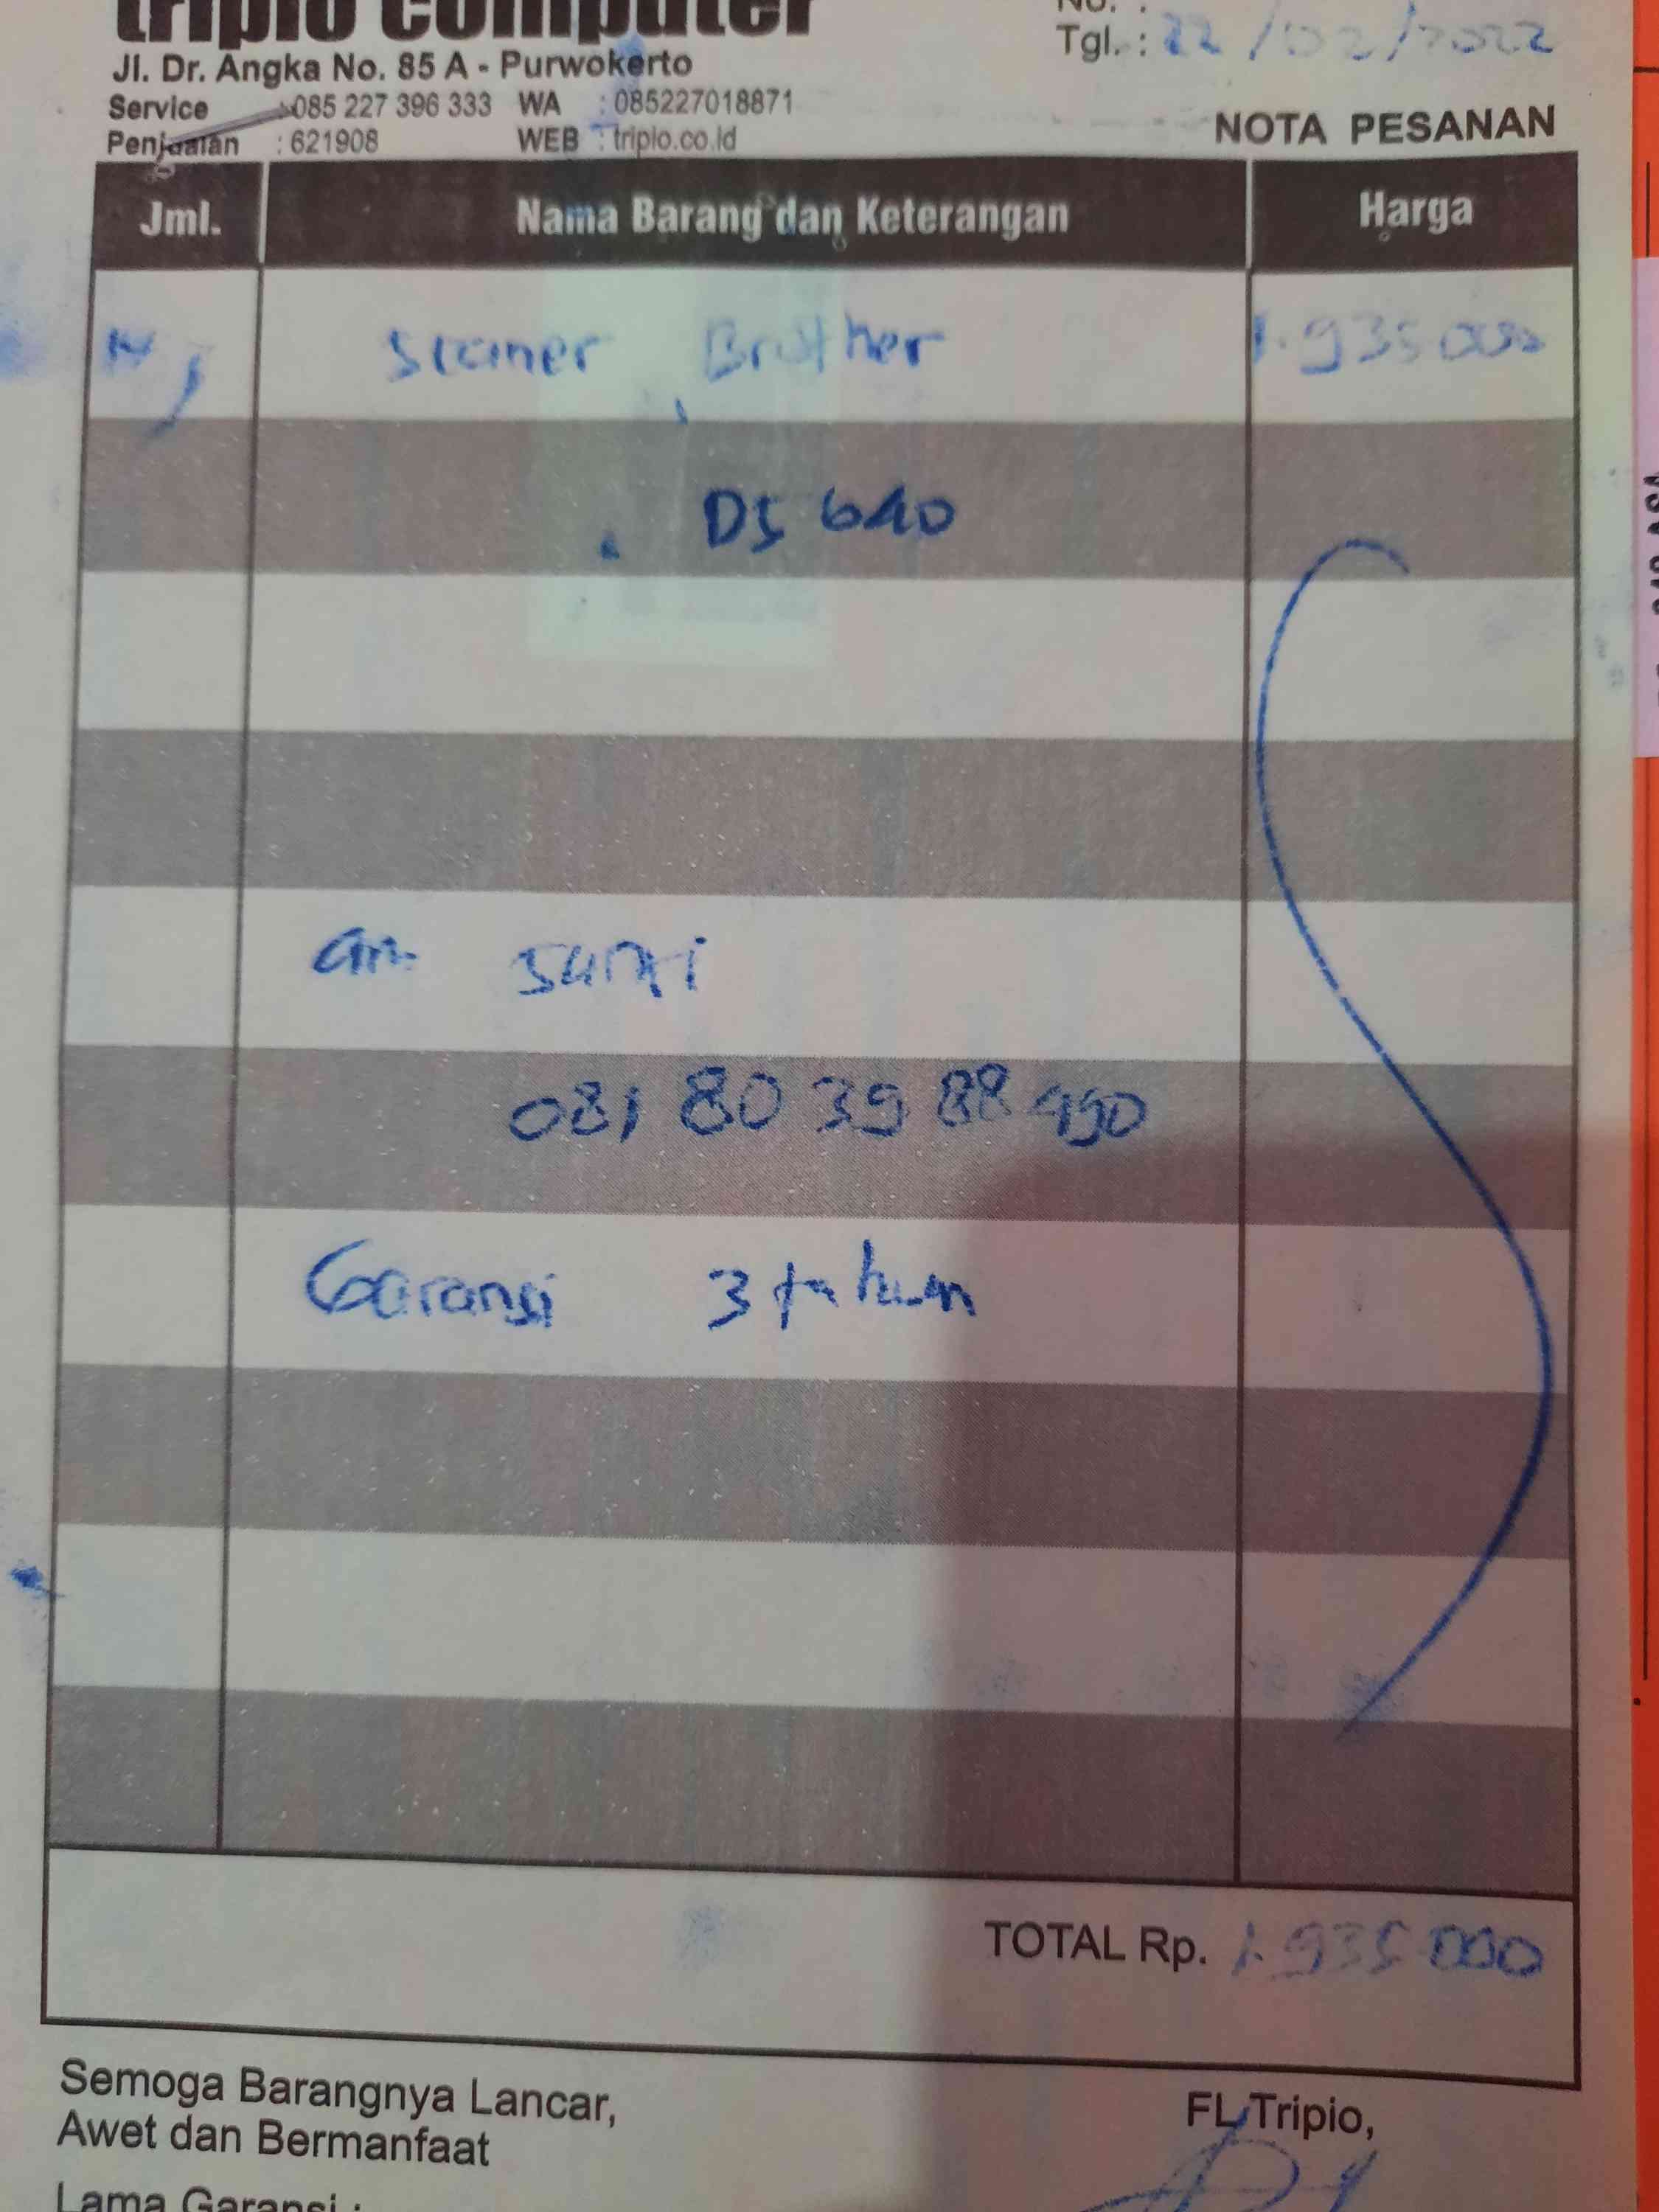 tripio computer
Jl. Dr. Angka No. 85 A - Purwokerto
Service : 085 227 396 333 WA : 085227018871
Penjualan : 621908 WEB : tripio.co.id
No. :
Tgl. : 22/02/2022
NOTA PESANAN
Jml. Nama Barang dan Keterangan Harga
Scaner Brother 1.935.000
DS 640
an Santi
Garansi 3 tahun
TOTAL Rp. 1.935.000
Semoga Barangnya Lancar,
Awet dan Bermanfaat
FL Tripio,
Lama Garansi :